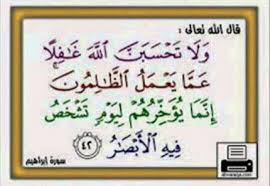 قال الله تعالى :
وَلَا تَحْسَبَنَّ اللَّهَ غَافِلًا
عَمَّا يَعْمَلُ الظَّالِمُونَ
إِنَّمَا يُؤَخِّرُهُمْ لِيَوْمٍ تَشْخَصُ
فِيهِ الْأَبْصَارُ ٤٢
سورة إبراهيم